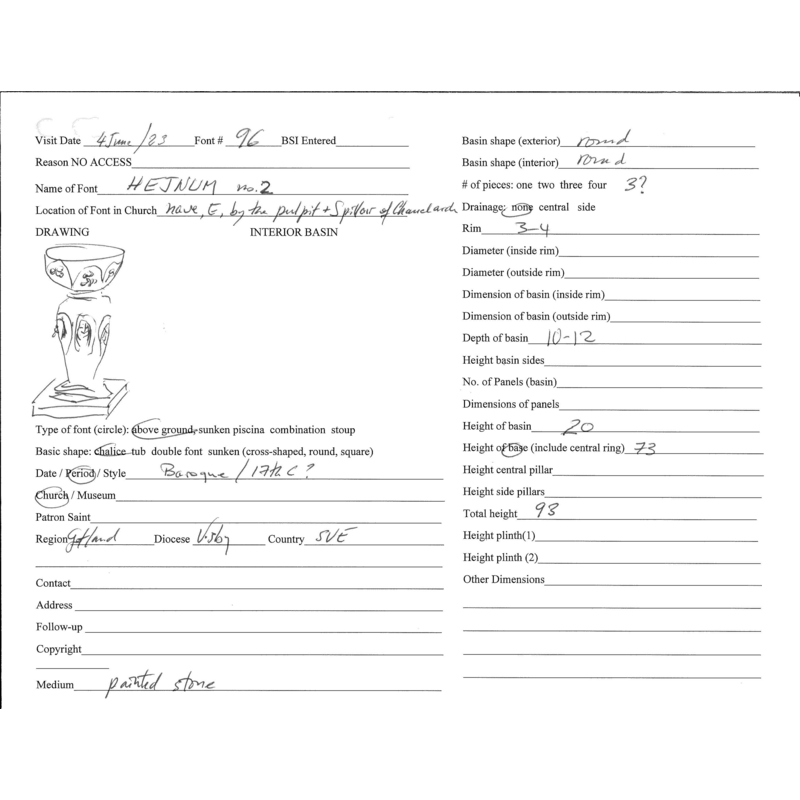 Visit Date 4 June/23 Font # 96 BSI Entered
Reason NO ACCESS
Name of Font HEJNUM no.2
Location of Font in Church nave, E, by the pulpit + S pillar of Chancel arch
DRAWING INTERIOR BASIN
Type of font (circle): above ground, sunken piscina combination stoup
Basic shape: chalice tub double font sunken (cross-shaped, round, square)
Date / Period / Style Baroque / 17th C ?
Church / Museum
Patron Saint
Region Gotland Diocese Visby Country SVE
Contact
Address
Follow-up
Copyright
Medium painted stone
Basin shape (exterior) round
Basin shape (interior) round
# of pieces: one two three four 3?
Drainage: none central side
Rim 3-4
Diameter (inside rim)
Diameter (outside rim)
Dimension of basin (inside rim)
Dimension of basin (outside rim)
Depth of basin 10-12
Height basin sides
No. of Panels (basin)
Dimensions of panels
Height of basin 20
Height of base (include central ring) 73
Height central pillar
Height side pillars
Total height 93
Height plinth(1)
Height plinth (2)
Other Dimensions